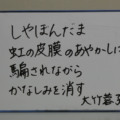 しやほんだま
虹の皮膜のあやかしに
騙されながら
かなしみを消す
大竹蓉